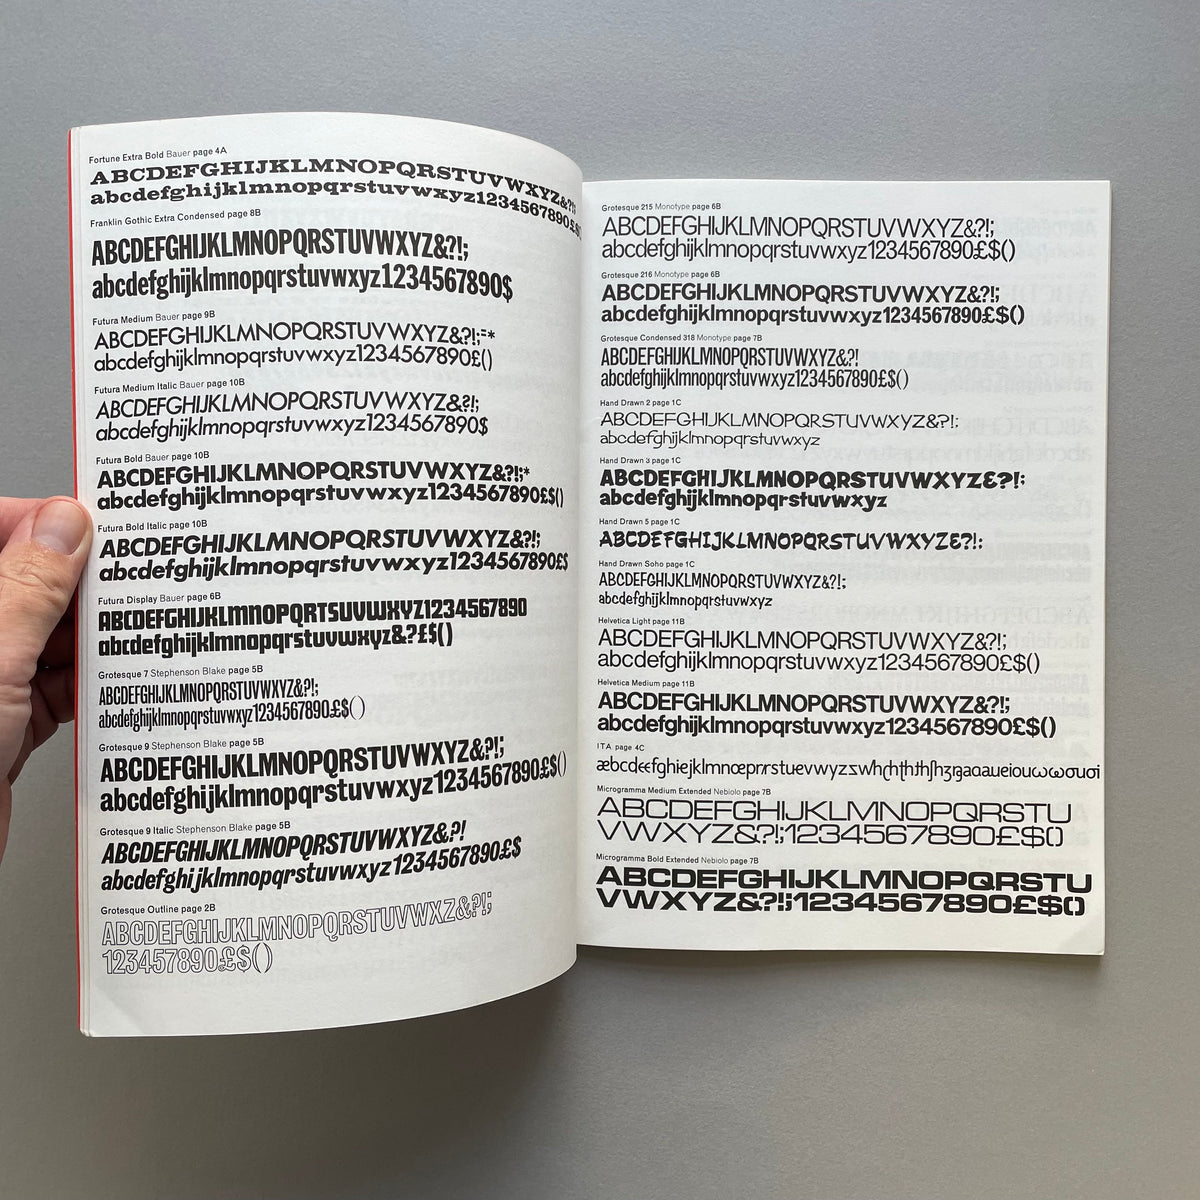 Fortune Extra Bold Bauer page 4A
ABCDEFGHIJKLMNOPQRSTUVWXYZ&?!;
abcdefghijklmnopqrstuvwxyz1234567890£$
Franklin Gothic Extra Condensed page 8B
ABCDEFGHIJKLMNOPQRSTUVWXYZ&?!;
abcdefghijklmnopqrstuvwxyz1234567890$
Futura Medium Bauer page 9B
ABCDEFGHIJKLMNOPQRSTUVWXYZ&?!;"*
abcdefghijklmnopqrstuvwxyz1234567890£()
Futura Medium Italic Bauer page 10B
ABCDEFGHIJKLMNOPQRSTUVWXYZ&?!;
abcdefghijklmnopqrstuvwxyz1234567890$
Futura Bold Bauer page 10B
ABCDEFGHIJKLMNOPQRSTUVWXYZ&?!;*
abcdefghijklmnopqrstuvwxyz1234567890£$()
Futura Bold Italic page 10B
ABCDEFGHIJKLMNOPQRSTUVWXYZ&?!;
abcdefghijklmnopqrstuvwxyz1234567890£$
Futura Display Bauer page 6B
ABCDEFGHIJKLMNOPQRTSUVWXYZ1234567890
abcdefghijklmnopqrstuvwxyz&?£$()
Grotesque 7 Stephenson Blake page 5B
ABCDEFGHIJKLMNOPQRSTUVWXYZ&?!;
abcdefghijklmnopqrstuvwxyz1234567890£$()
Grotesque 9 Stephenson Blake page 5B
ABCDEFGHIJKLMNOPQRSTUVWXYZ&?!;
abcdefghijklmnopqrstuvwxyz1234567890£$()
Grotesque 9 Italic Stephenson Blake page 5B
ABCDEFGHIJKLMNOPQRSTUVWXYZ&?!
abcdefghijklmnopqrstuvwxyz1234567890£$
Grotesque Outline page 2B
ABCDEFGHIJKLMNOPQRSTUVWXZ&?!;
123457890£$()
Grotesque 215 Monotype page 6B
ABCDEFGHIJKLMNOPQRSTUVWXYZ&?!;
abcdefghijklmnopqrstuvwxyz1234567890£$()
Grotesque 216 Monotype page 6B
ABCDEFGHIJKLMNOPQRSTUVWXYZ&?!;
abcdefghijklmnopqrstuvwxyz1234567890£$()
Grotesque Condensed 318 Monotype page 7B
ABCDEFGHIJKLMNOPQRSTUVWXYZ&?!
abcdefghijklmnopqrstuvwxyz1234567890£$()
Hand Drawn 2 page 1C
ABCDEFGHIJKLMNOPQRSTUVWXYZ&?!;
abcdefghijklmnopqrstuvwxyz
Hand Drawn 3 page 1C
ABCDEFGHIJKLMNOPQRSTUVWXYZ&?!:
abcdefghijklmnopqrstuvwxyz
Hand Drawn 5 page 1C
ABCDEFGHIJKLMNOPQRSTUVWXYZ&?!:
Hand Drawn Soho page 1C
ABCDEFGHIJKLMNOPQRSTUVWXYZ&?!;
abcdefghijklmnopqrstuvwxyz
Helvetica Light page 11B
ABCDEFGHIJKLMNOPQRSTUVWXYZ&?!;
abcdefghijklmnopqrstuvwxyz1234567890£$()
Helvetica Medium page 11B
ABCDEFGHIJKLMNOPQRSTUVWXYZ&?!;
abcdefghijklmnopqrstuvwxyz1234567890£$()
ITA page 4C
Microgramma Medium Extended Nebiolo page 7B
ABCDEFGHIJKLMNOPQRSTU
VWXYZ&?!;1234567890£$()
Microgramma Bold Extended Nebiolo page 7B
ABCDEFGHIJKLMNOPQRSTU
VWXYZ&?!;1234567890£$()